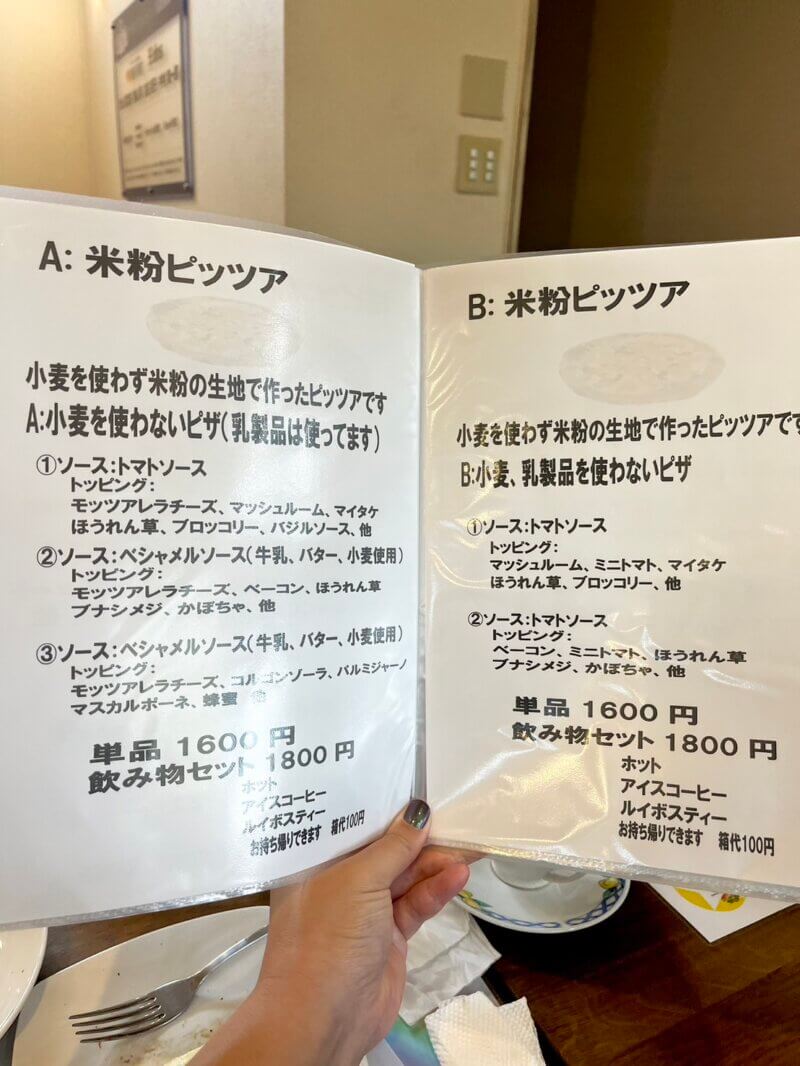 A: 米粉ピッツア
小麦を使わず米粉の生地で作ったピッツアです
A:小麦を使わないピザ(乳製品は使ってます)
①ソース:トマトソース
トッピング:
モッツアレラチーズ、マッシュルーム、マイタケ
ほうれん草、ブロッコリー、バジルソース、他
②ソース:ベシャメルソース(牛乳、バター、小麦使用)
トッピング:
モッツアレラチーズ、ベーコン、ほうれん草
ブナシメジ、かぼちゃ、他
③ソース:ベシャメルソース(牛乳、バター、小麦使用)
トッピング:
モッツアレラチーズ、コルゴンゾーラ、パルミジャーノ
マスカルポーネ、蜂蜜 他
単品 1600 円
飲み物セット 1800 円
ホット
アイスコーヒー
ルイボスティー
お持ち帰りできます 箱代100円
B: 米粉ピッツア
小麦を使わず米粉の生地で作ったピッツアです
B:小麦、乳製品を使わないピザ
①ソース:トマトソース
トッピング:
マッシュルーム、ミニトマト、マイタケ
ほうれん草、ブロッコリー、他
②ソース:トマトソース
トッピング:
ベーコン、ミニトマト、ほうれん草
ブナシメジ、かぼちゃ、他
単品 1600 円
飲み物セット 1800 円
ホット
アイスコーヒー
ルイボスティー
お持ち帰りできます 箱代100円